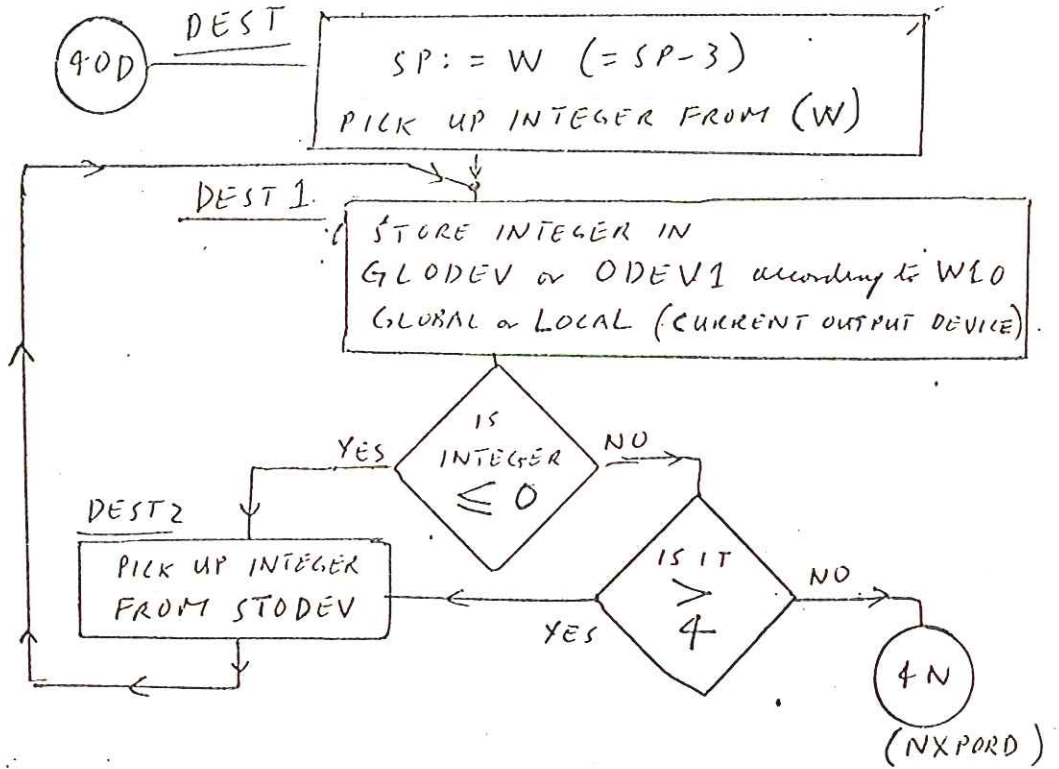 40D
DEST
SP: = W (= SP-3)
PICK UP INTEGER FROM (W)
DEST 1.
STORE INTEGER IN
GLODEV or ODEV1 according to W10
GLOBAL or LOCAL (CURRENT OUTPUT DEVICE).
IS
INTEGER
≤ 0
YES
NO
DEST2
PICK UP INTEGER
FROM STODEV
IS IT
>
4
YES
NO
4N
(NXPORD)